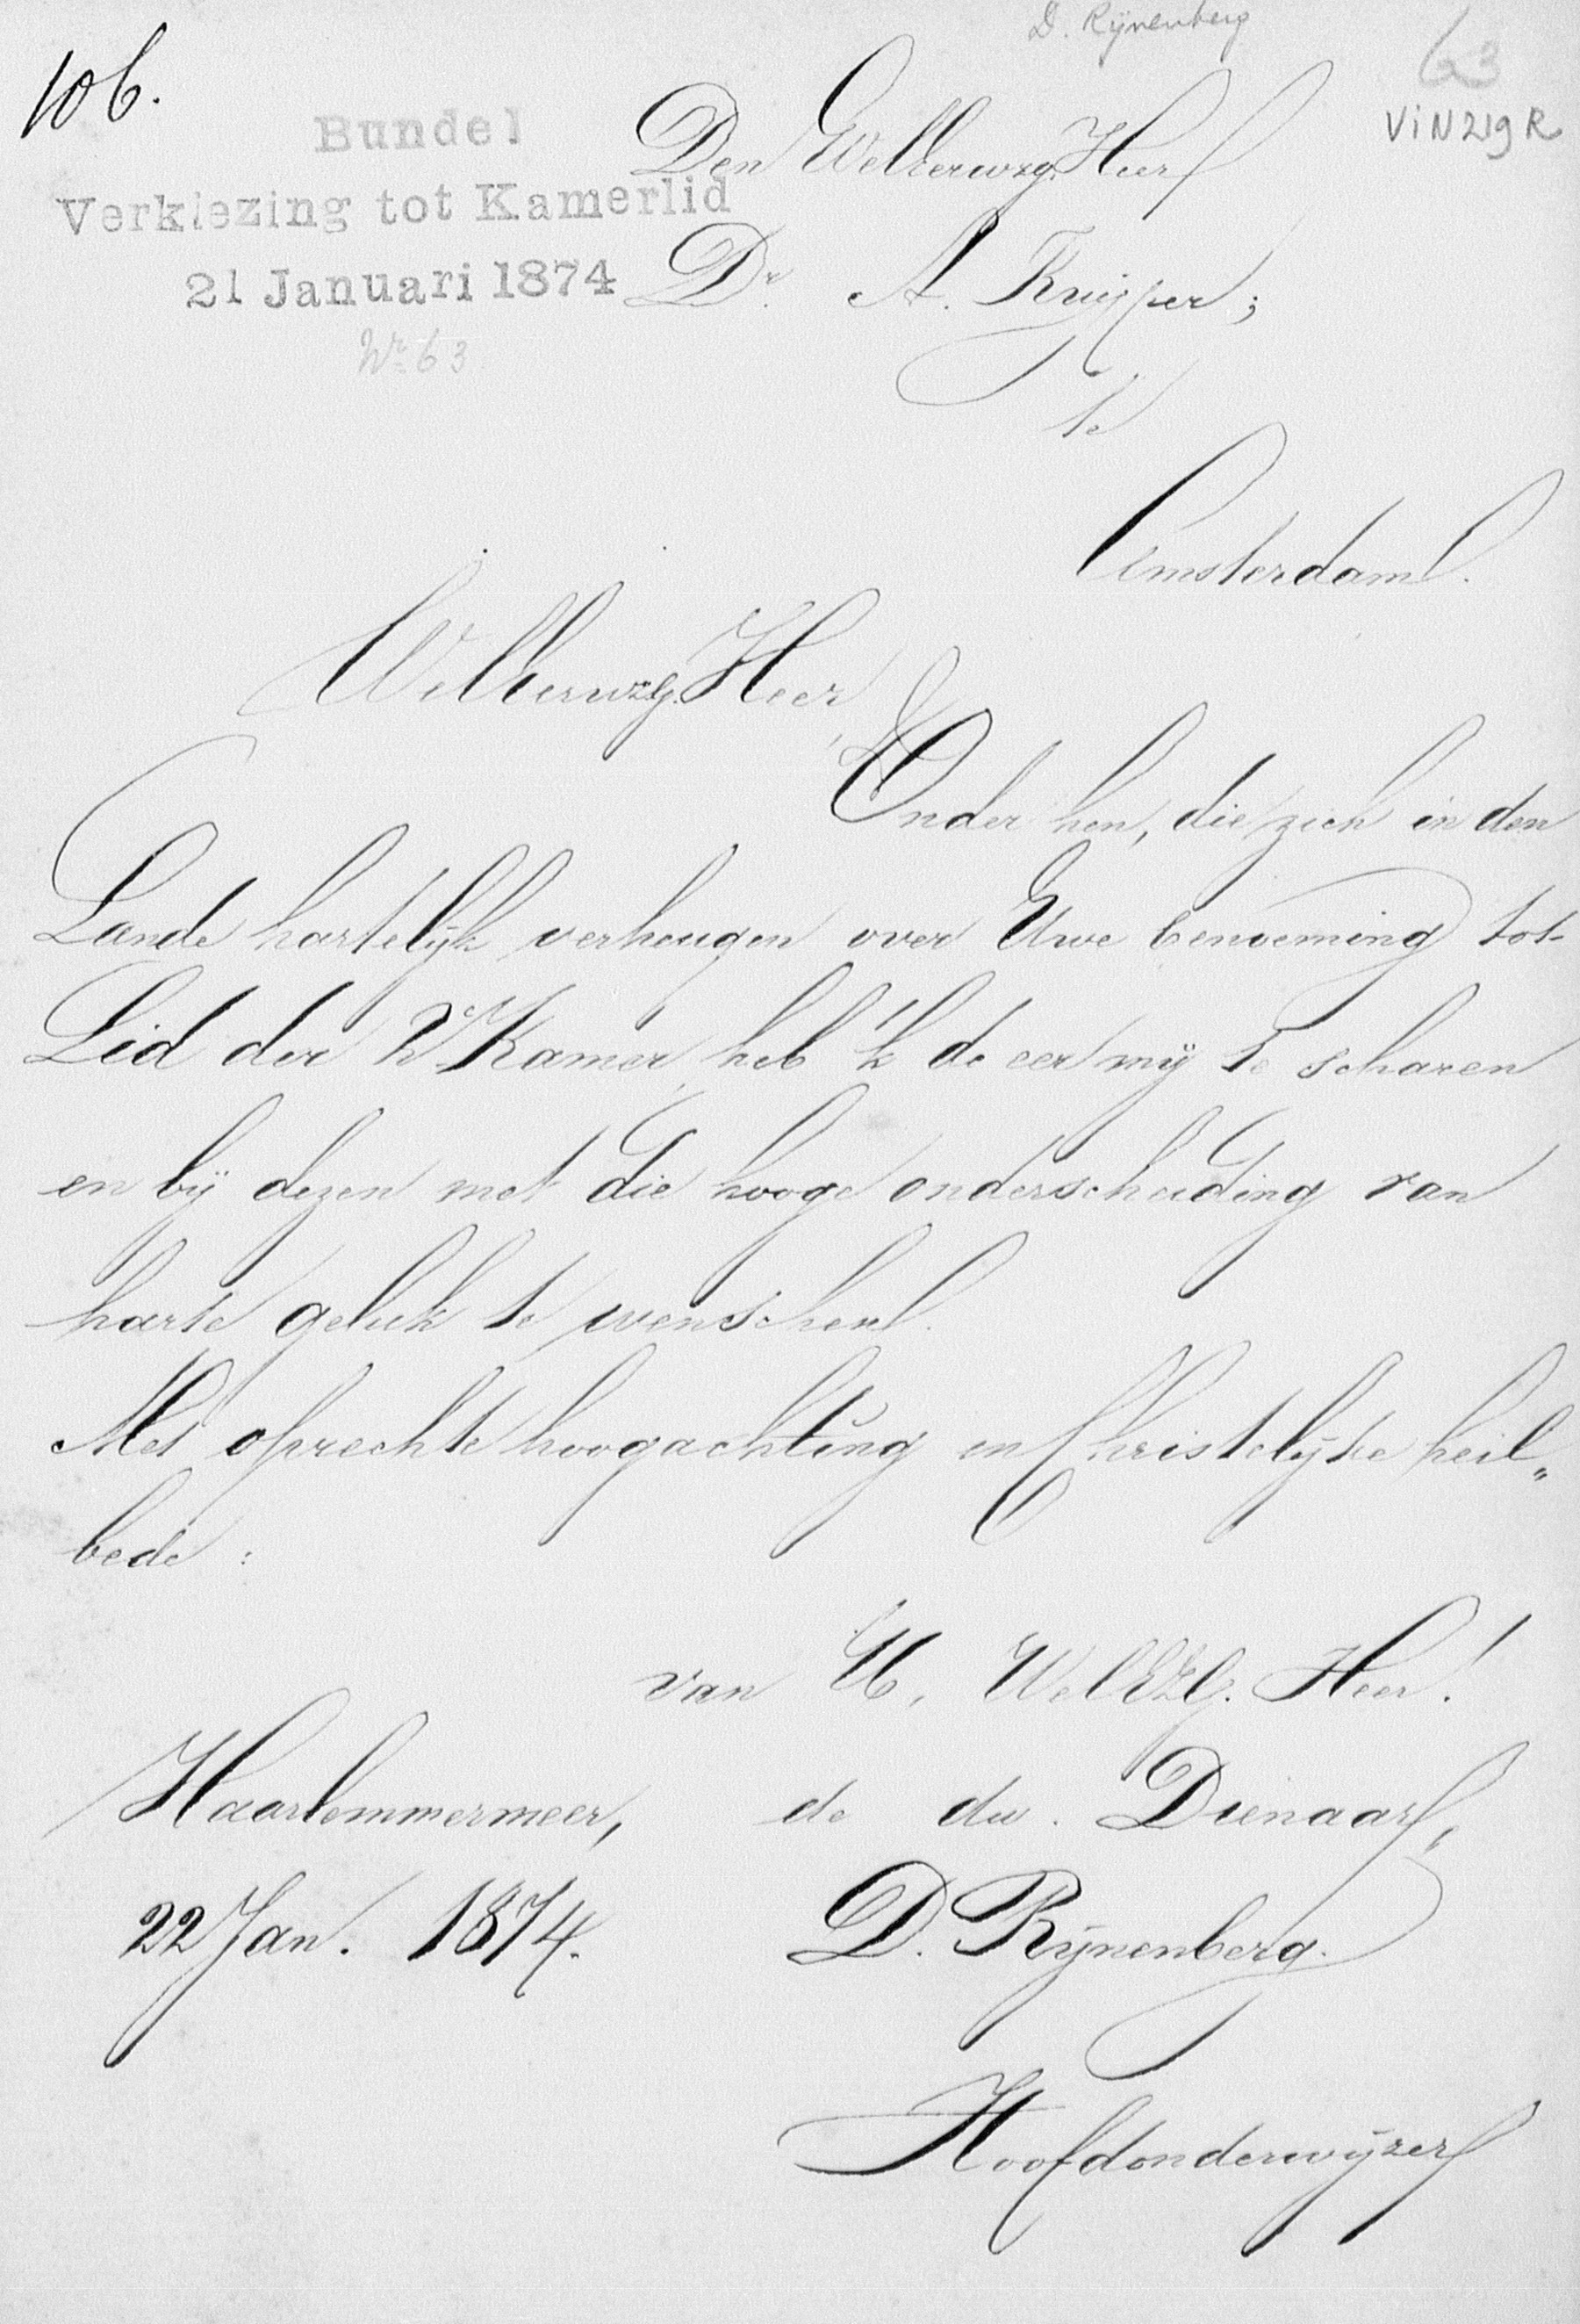 D. Rijnenberg
63
106.
ViN219R
Bundel
Verkiezing tot Kamerlid
21 Januari 1874
Nr 63
Den WelEerwzg. Heer
Dr. A. Kuijper;
te
Amsterdam.
WelEerwzg. Heer,
Onder hen, die zich in den
Lande hartelijk verheugen over Uwe benoeming tot
Lid der 2e Kamer, heb 'k de eer mij te scharen
en bij dezen met die hooge onderscheiding van
harte geluk te wenschen.
Met oprechte hoogachting en Christelijke heil„
bede:
van U, WelEZG. Heer!
Haarlemmermeer, de dw. Dienaar,
22 Jan. 1874. D. Rijnenberg.
Hoofdonderwijzer